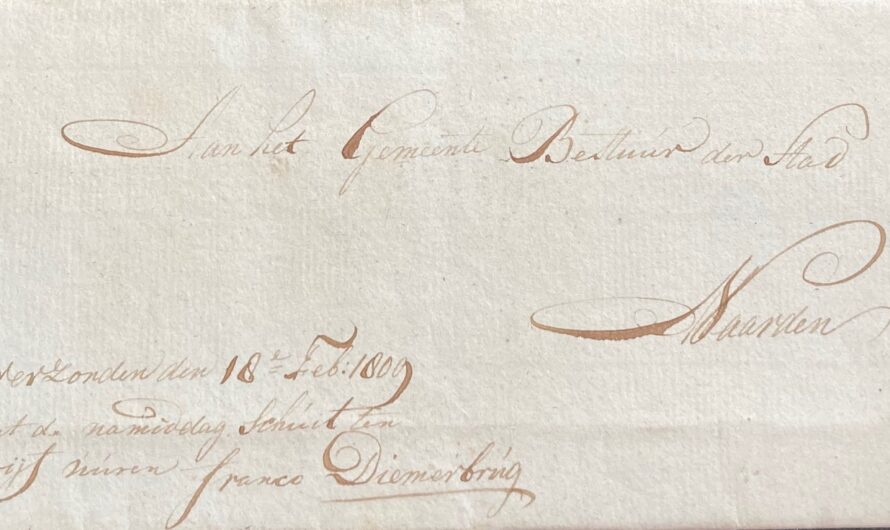 Aan het Gemeente Bestuur der Stad
Naarden
verzonden den 18e Feb: 1809
de namiddag Schuit ten
uuren franco Diemerbrug